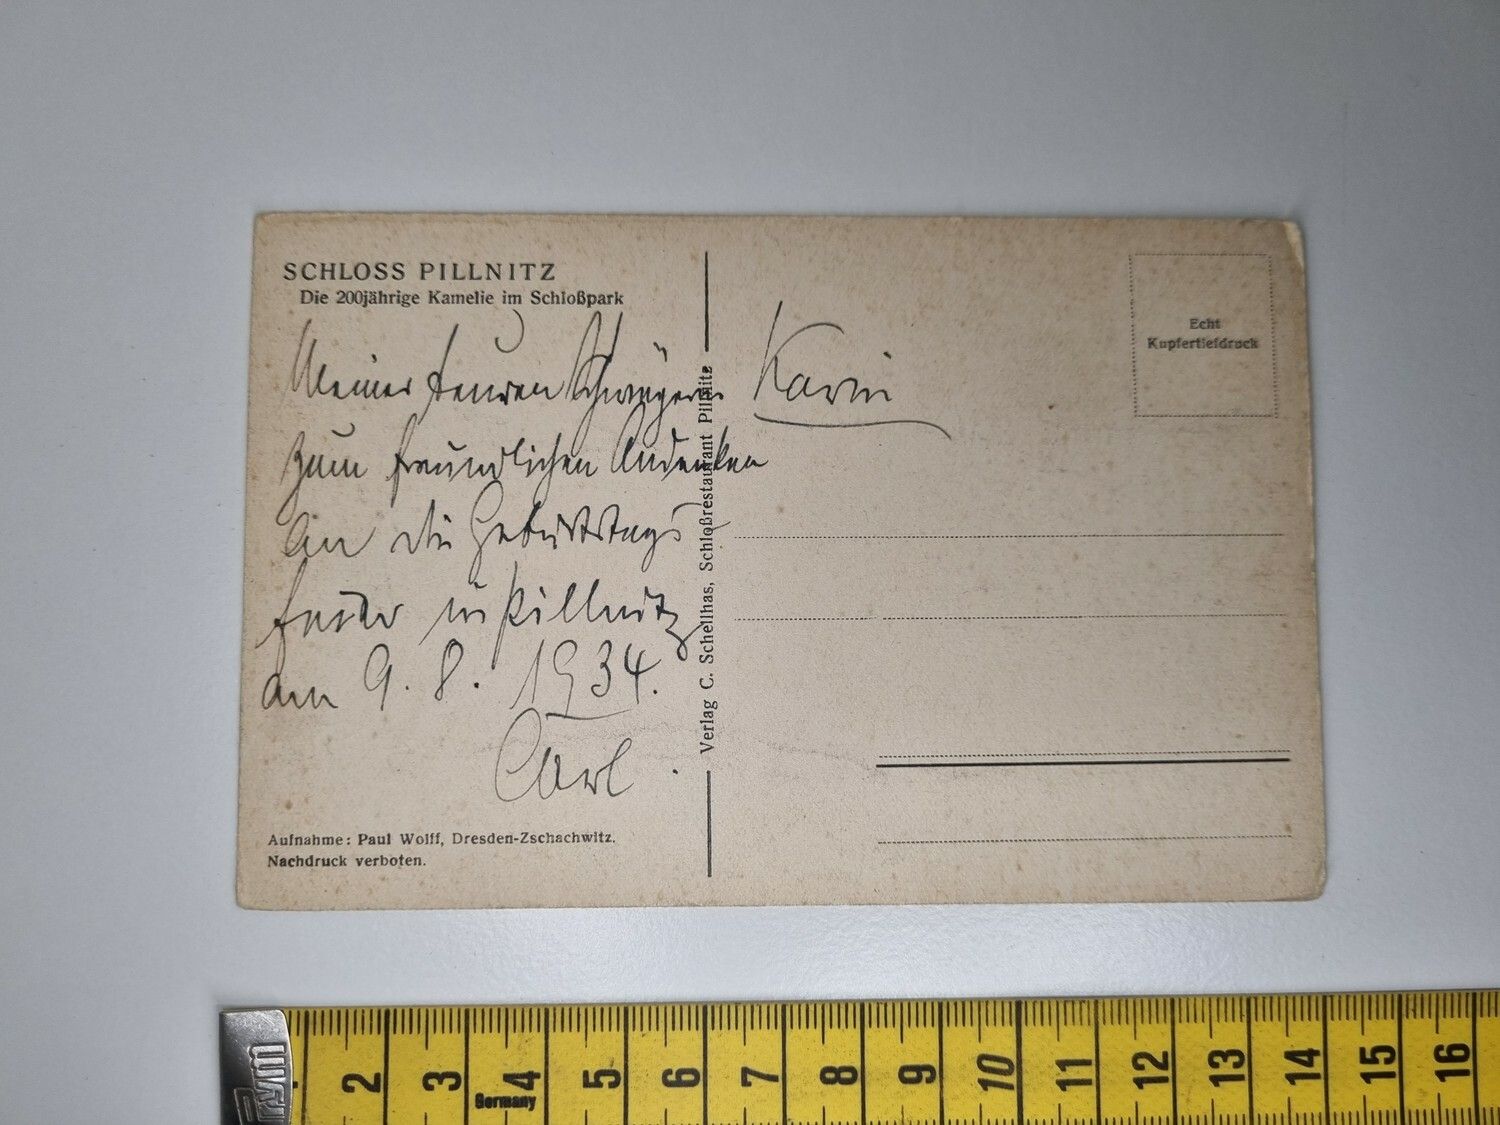 SCHLOSS PILLNITZ
Die 200jährige Kamelie im Schloßpark
Meiner teuren Schwägerin Karin
zum freundlichen Andenken
An die Geburtstags
feier in Pillnitz
am 9. 8. 1934.
Carl.
Aufnahme: Paul Wolff, Dresden-Zschachwitz.
Nachdruck verboten.
Verlag C. Schellhas, Schloßrestaurant Pillnitz
Echt
Kupfertiefdruck
Prym
2 3 4 5 6 7 8 9 10 11 12 13 14 15 16
Germany